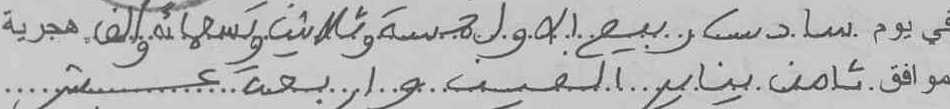 في يوم سادس ربيع الاول خمسة وثلاثين وتسعمائة وألف هجرية
موافق ثامن يناير الفين و اربعة عشر